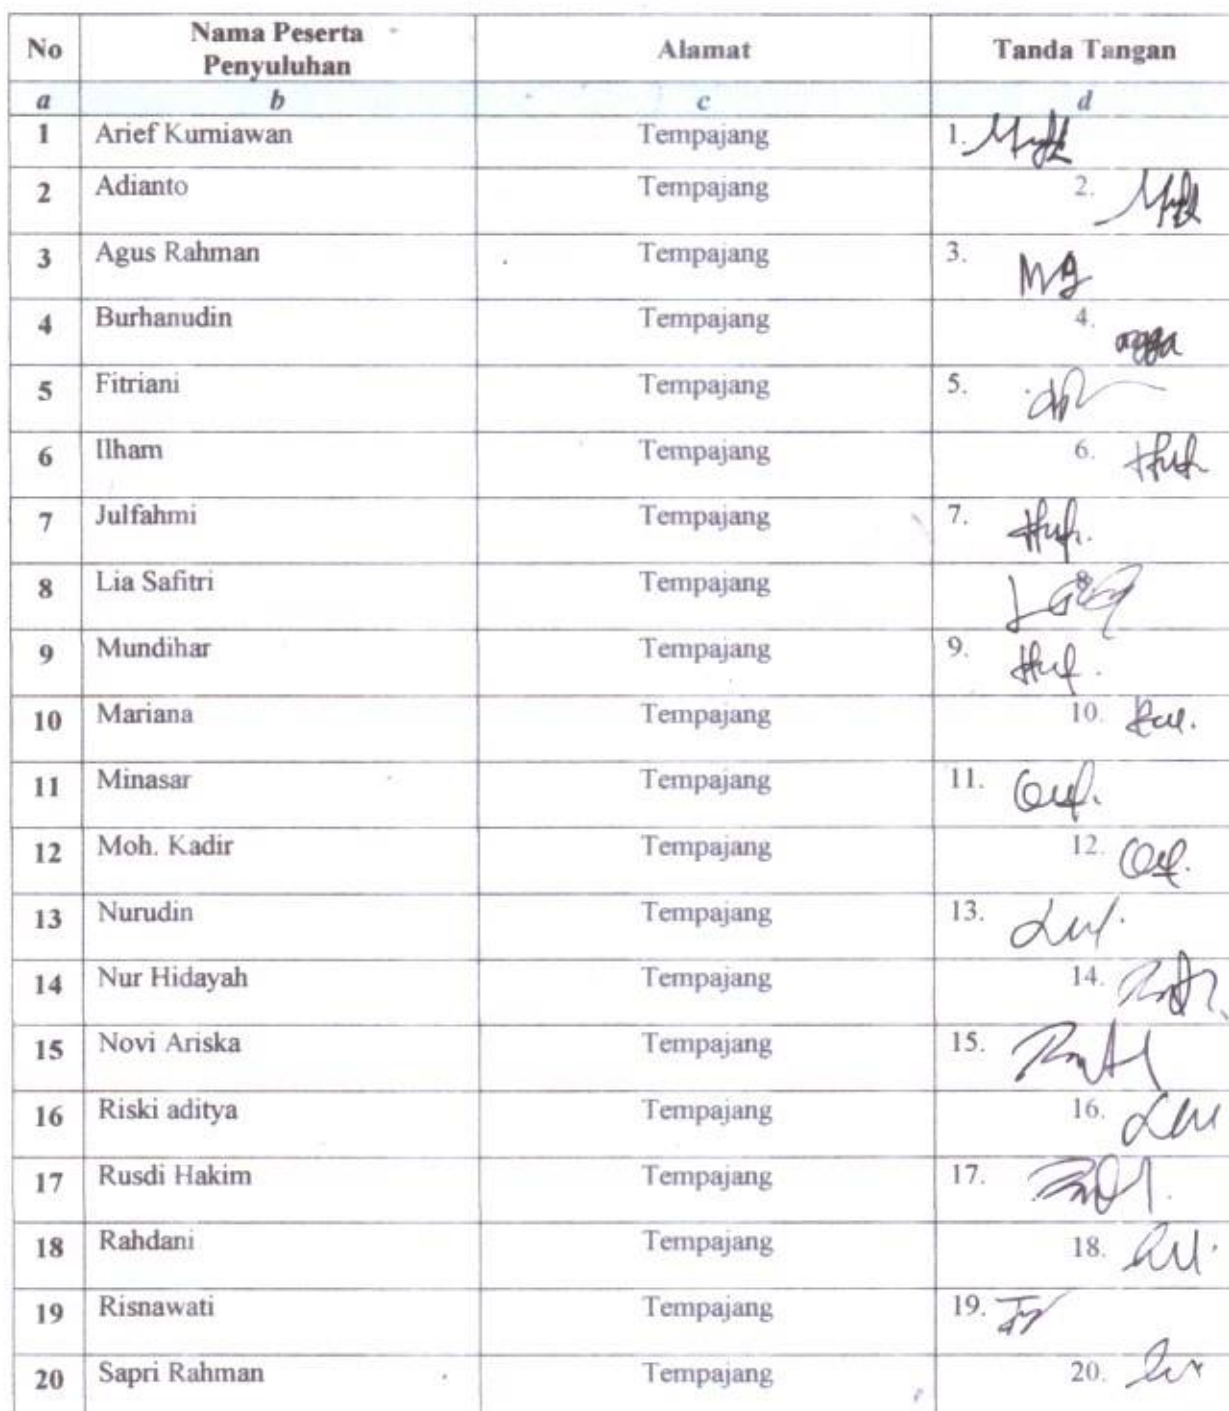 No Nama Peserta Alamat Tanda Tangan
Penyuluhan
a b c d
1 Arief Kurniawan Tempajang 1.
2 Adianto Tempajang 2.
3 Agus Rahman Tempajang 3.
4 Burhanudin Tempajang 4.
5 Fitriani Tempajang 5.
6 Ilham Tempajang 6.
7 Julfahmi Tempajang 7.
8 Lia Safitri Tempajang 8.
9 Mundihar Tempajang 9.
10 Mariana Tempajang 10.
11 Minasar Tempajang 11.
12 Moh. Kadir Tempajang 12.
13 Nurudin Tempajang 13.
14 Nur Hidayah Tempajang 14.
15 Novi Ariska Tempajang 15.
16 Riski aditya Tempajang 16.
17 Rusdi Hakim Tempajang 17.
18 Rahdani Tempajang 18.
19 Risnawati Tempajang 19.
20 Sapri Rahman Tempajang 20.